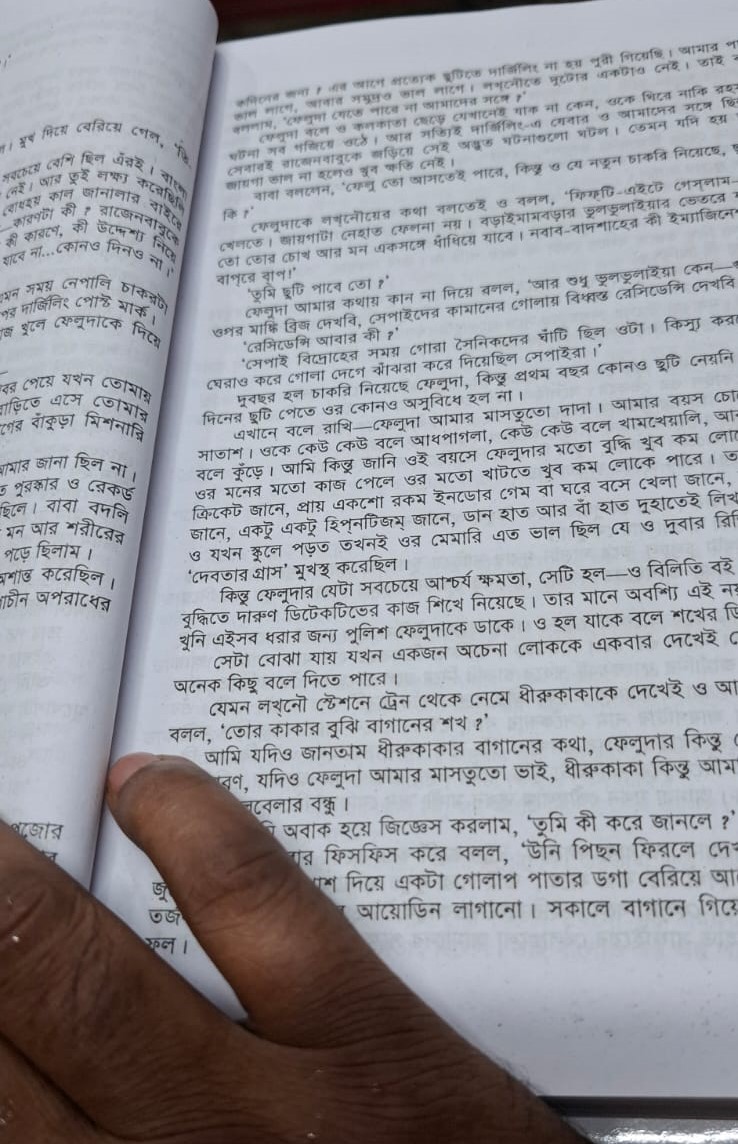 । মুখ দিয়ে বেরিয়ে গেল,
সবচেয়ে বেশি ছিল এঁরই।
নেই। আর তুই লক্ষ্য করেছিলি
বোধহয় কাল জানালার বাইরে
কারণটা কী? রাজেনবাবুকে
কী কারণে, কী উদ্দেশ্য নিয়ে
যাবে না...কোনও দিনও না।'
এমন সময় নেপালি চাকরটা
দার্জিলিং পোস্ট মার্ক।
খুলে ফেলুদাকে দিয়ে
পেয়ে যখন তোমায়
গাড়িতে এসে তোমার
বাঁকুড়া মিশনারি
আমার জানা ছিল না।
পুরস্কার ও রেকর্ড
ছিলে। বাবা বদলি
মন আর শরীরের
পড়ে ছিলাম।
শাস্ত করেছিল।
প্রাচীন অপরাধের
ভাল লাগে, আবার সমুদ্রও ভাল লাগে। লখ্‌নৌতে দুটোর একটাও নেই। তাই
বললাম, 'ফেলুদা যেতে পারে না আমাদের সঙ্গে?'
ফেলুদা বলে ও কলকাতা ছেড়ে যেখানেই যাক না কেন, ওকে ঘিরে নাকি রহস্য
ঘটনা সব গজিয়ে ওঠে। আর সত্যিই দার্জিলিং-এ যেবার ও আমাদের সঙ্গে
সেবারই রাজেনবাবুকে জড়িয়ে সেই অদ্ভুত ঘটনাগুলো ঘটল। তেমন যদি হয়
জায়গা ভাল না হলেও খুব ক্ষতি নেই।
বাবা বললেন, 'ফেলু তো আসতেই পারে, কিন্তু ও যে নতুন চাকরি নিয়েছে,
কি?'
ফেলুদাকে লখ্‌নৌয়ের কথা বলতেই ও বলল, 'ফিফ্‌টি-এইটে গেস্‌লাম
খেলতে। জায়গাটা নেহাত ফেলনা নয়। বড়াইমামবড়ার ভুলভুলাইয়ার ভেতরে
তো তোর চোখ আর মন একসঙ্গে ধাঁধিয়ে যাবে। নবাব-বাদশাহের কী ইম্যাজিনেশন
বাপ্‌রে বাপ্‌!'
'তুমি ছুটি পাবে তো?'
ফেলুদা আমার কথায় কান না দিয়ে বলল, 'আর শুধু ভুলভুলাইয়া কেন—
ওপর মাঙ্কি ব্রিজ দেখবি, সেপাইদের কামানের গোলায় বিধ্বস্ত রেসিডেন্সি দেখবি
'রেসিডেন্সি আবার কী?'
'সেপাই বিদ্রোহের সময় গোরা সৈনিকদের ঘাঁটি ছিল ওটা। কিস্যু করতে
ঘেরাও করে গোলা দেগে ঝাঁঝরা করে দিয়েছিল সেপাইরা।'
দুবছর হল চাকরি নিয়েছে ফেলুদা, কিন্তু প্রথম বছর কোনও ছুটি নেয়নি
দিনের ছুটি পেতে ওর কোনও অসুবিধে হল না।
এখানে বলে রাখি—ফেলুদা আমার মাসতুতো দাদা। আমার বয়স চোদ্দ
সাতাশ। ওকে কেউ কেউ বলে আধপাগলা, কেউ কেউ বলে খামখেয়ালি, আবার
বলে কুঁড়ে। আমি কিন্তু জানি ওই বয়সে ফেলুদার মতো বুদ্ধি খুব কম লোকের
ওর মনের মতো কাজ পেলে ওর মতো খাটতে খুব কম লোকে পারে।
ক্রিকেট জানে, প্রায় একশো রকম ইনডোর গেম বা ঘরে বসে খেলা জানে,
জানে, একটু একটু হিপনটিজম্ জানে, ডান হাত আর বাঁ হাত দুহাতেই লিখতে
ও যখন স্কুলে পড়ত তখনই ওর মেমারি এত ভাল ছিল যে ও দুবার রিডিং
'দেবতার গ্রাস' মুখস্থ করেছিল।
কিন্তু ফেলুদার যেটা সবচেয়ে আশ্চর্য ক্ষমতা, সেটি হল—ও বিলিতি বই
বুদ্ধিতে দারুণ ডিটেকটিভের কাজ শিখে নিয়েছে। তার মানে অবশ্যি এই নয়
খুনি এইসব ধরার জন্য পুলিশ ফেলুদাকে ডাকে। ও হল যাকে বলে শখের ডি
সেটা বোঝা যায় যখন একজন অচেনা লোককে একবার দেখেই
অনেক কিছু বলে দিতে পারে।
যেমন লখ্‌নৌ স্টেশনে ট্রেন থেকে নেমে ধীরুকাকাকে দেখেই ও আমা
বলল, 'তোর কাকার বুঝি বাগানের শখ?'
আমি যদিও জানতাম ধীরুকাকার বাগানের কথা, ফেলুদার কিন্তু
রণ, যদিও ফেলুদা আমার মাসতুতো ভাই, ধীরুকাকা কিন্তু আমা
লেবেলার বন্ধু।
অবাক হয়ে জিজ্ঞেস করলাম, 'তুমি কী করে জানলে?'
র ফিসফিস করে বলল, 'উনি পিছন ফিরলে দে
দিয়ে একটা গোলাপ পাতার ডগা বেরিয়ে আ
আয়োডিন লাগানো। সকালে বাগানে গিয়ে
ফল।